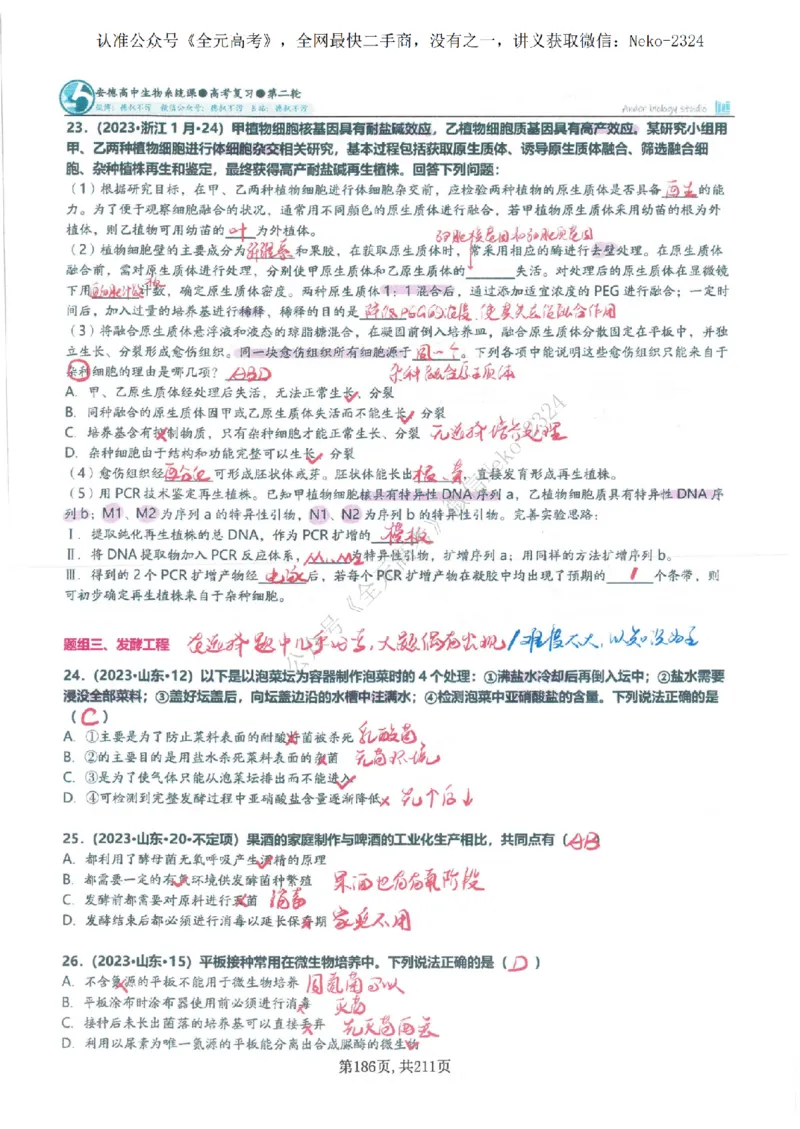 认准公众号《全元高考》，全网最快二手商，没有之一，讲义获取微信：Neko-2324
安德高中生物系统课●高考复习●第二轮
Andor biology studio
23．（2023•浙江1月•24）甲植物细胞核基因具有耐盐碱效应，乙植物细胞质基因具有高产效应。某研究小组用
甲、乙两种植物细胞进行体细胞杂交相关研究，基本过程包括获取原生质体、诱导原生质体融合、筛选融合细
胞、杂种植株再生和鉴定，最终获得高产耐盐碱再生植株。回答下列问题：
（1）根据研究目标，在甲、乙两种植物细胞进行体细胞杂交前，应检验两种植物的原生质体是否具备 再生 的能
力。为了便于观察细胞融合的状况，通常用不同颜色的原生质体进行融合，若甲植物原生质体采用幼苗的根为外
植体，则乙植物可用幼苗的 叶 为外植体。
细胞核基因和细胞质基因
（2）植物细胞壁的主要成分为 纤维素 和果胶，在获取原生质体时，常采用相应的酶进行去壁处理。在原生质体
融合前，需对原生质体进行处理，分别使甲原生质体和乙原生质体的______失活。对处理后的原生质体在显微镜
下用 血细胞计数板 计数，确定原生质体密度。两种原生质体1：1混合后，通过添加适宜浓度的PEG进行融合；一定时
间后，加入过量的培养基进行稀释，稀释的目的是 降低PEG的浓度，使其失去融合作用
（3）将融合原生质体悬浮液和液态的琼脂糖混合，在凝固前倒入培养皿，融合原生质体分散固定在平板中，并独
立生长、分裂形成愈伤组织。同一块愈伤组织所有细胞源于 同一个 。下列各项中能说明这些愈伤组织只能来自于
杂种细胞的理由是哪几项？ ABD 杂种融合原生质体
A．甲、乙原生质体经处理后失活，无法正常生长、分裂
B．同种融合的原生质体因甲或乙原生质体失活而不能生长、分裂
C．培养基含有抑制物质，只有杂种细胞才能正常生长、分裂 无选择培养处理
D．杂种细胞由于结构和功能完整可以生长、分裂
（4）愈伤组织经 再分化 可形成胚状体或芽。胚状体能长出 根、芽 ，直接发育形成再生植株。
（5）用PCR技术鉴定再生植株。已知甲植物细胞核具有特异性DNA序列a，乙植物细胞质具有特异性DNA序
列b；M1、M2为序列a的特异性引物，N1、N2为序列b的特异性引物。完善实验思路：
Ⅰ．提取纯化再生植株的总DNA，作为PCR扩增的 模板
Ⅱ．将DNA提取物加入PCR反应体系， M1、M2 为特异性引物，扩增序列a；用同样的方法扩增序列b。
Ⅲ．得到的2个PCR扩增产物经 电泳 后，若每个PCR扩增产物在凝胶中均出现了预期的 1 个条带，则
可初步确定再生植株来自于杂种细胞。
题组三、发酵工程 在选择题中几乎必考，大题偶有出现/难度不大，以知识为主
24．（2023•山东•12）以下是以泡菜坛为容器制作泡菜时的4个处理：①沸盐水冷却后再倒入坛中；②盐水需要
浸没全部菜料；③盖好坛盖后，向坛盖边沿的水槽中注满水；④检测泡菜中亚硝酸盐的含量。下列说法正确的是
（ C ）
A．①主要是为了防止菜料表面的耐酸好菌被杀死 乳酸菌
B．②的主要目的是用盐水杀死菜料表面的杂菌 无菌环境
C．③是为了使气体只能从泡菜坛排出而不能进入
D．④可检测到完整发酵过程中亚硝酸盐含量逐渐降低 先个后↓
25．（2023•山东•20•不定项）果酒的家庭制作与啤酒的工业化生产相比，共同点有（ AB ）
A．都利用了酵母菌无氧呼吸产生酒精的原理
B．都需要一定的有氧环境供发酵菌种繁殖 果酒也有有氧阶段
C．发酵前都需要对原料进行灭菌 消毒
D．发酵结束后都必须进行消毒以延长保存期 家庭不用
26．（2023•山东•15）平板接种常用在微生物培养中。下列说法正确的是（ D ）
A．不含氮源的平板不能用于微生物培养 固氮菌可以
B．平板涂布时涂布器使用前必须进行消毒 灭菌
C．接种后未长出菌落的培养基可以直接丢弃 先灭菌再丢
D．利用以尿素为唯一氮源的平板能分离出合成脲酶的微生物
第186页，共211页